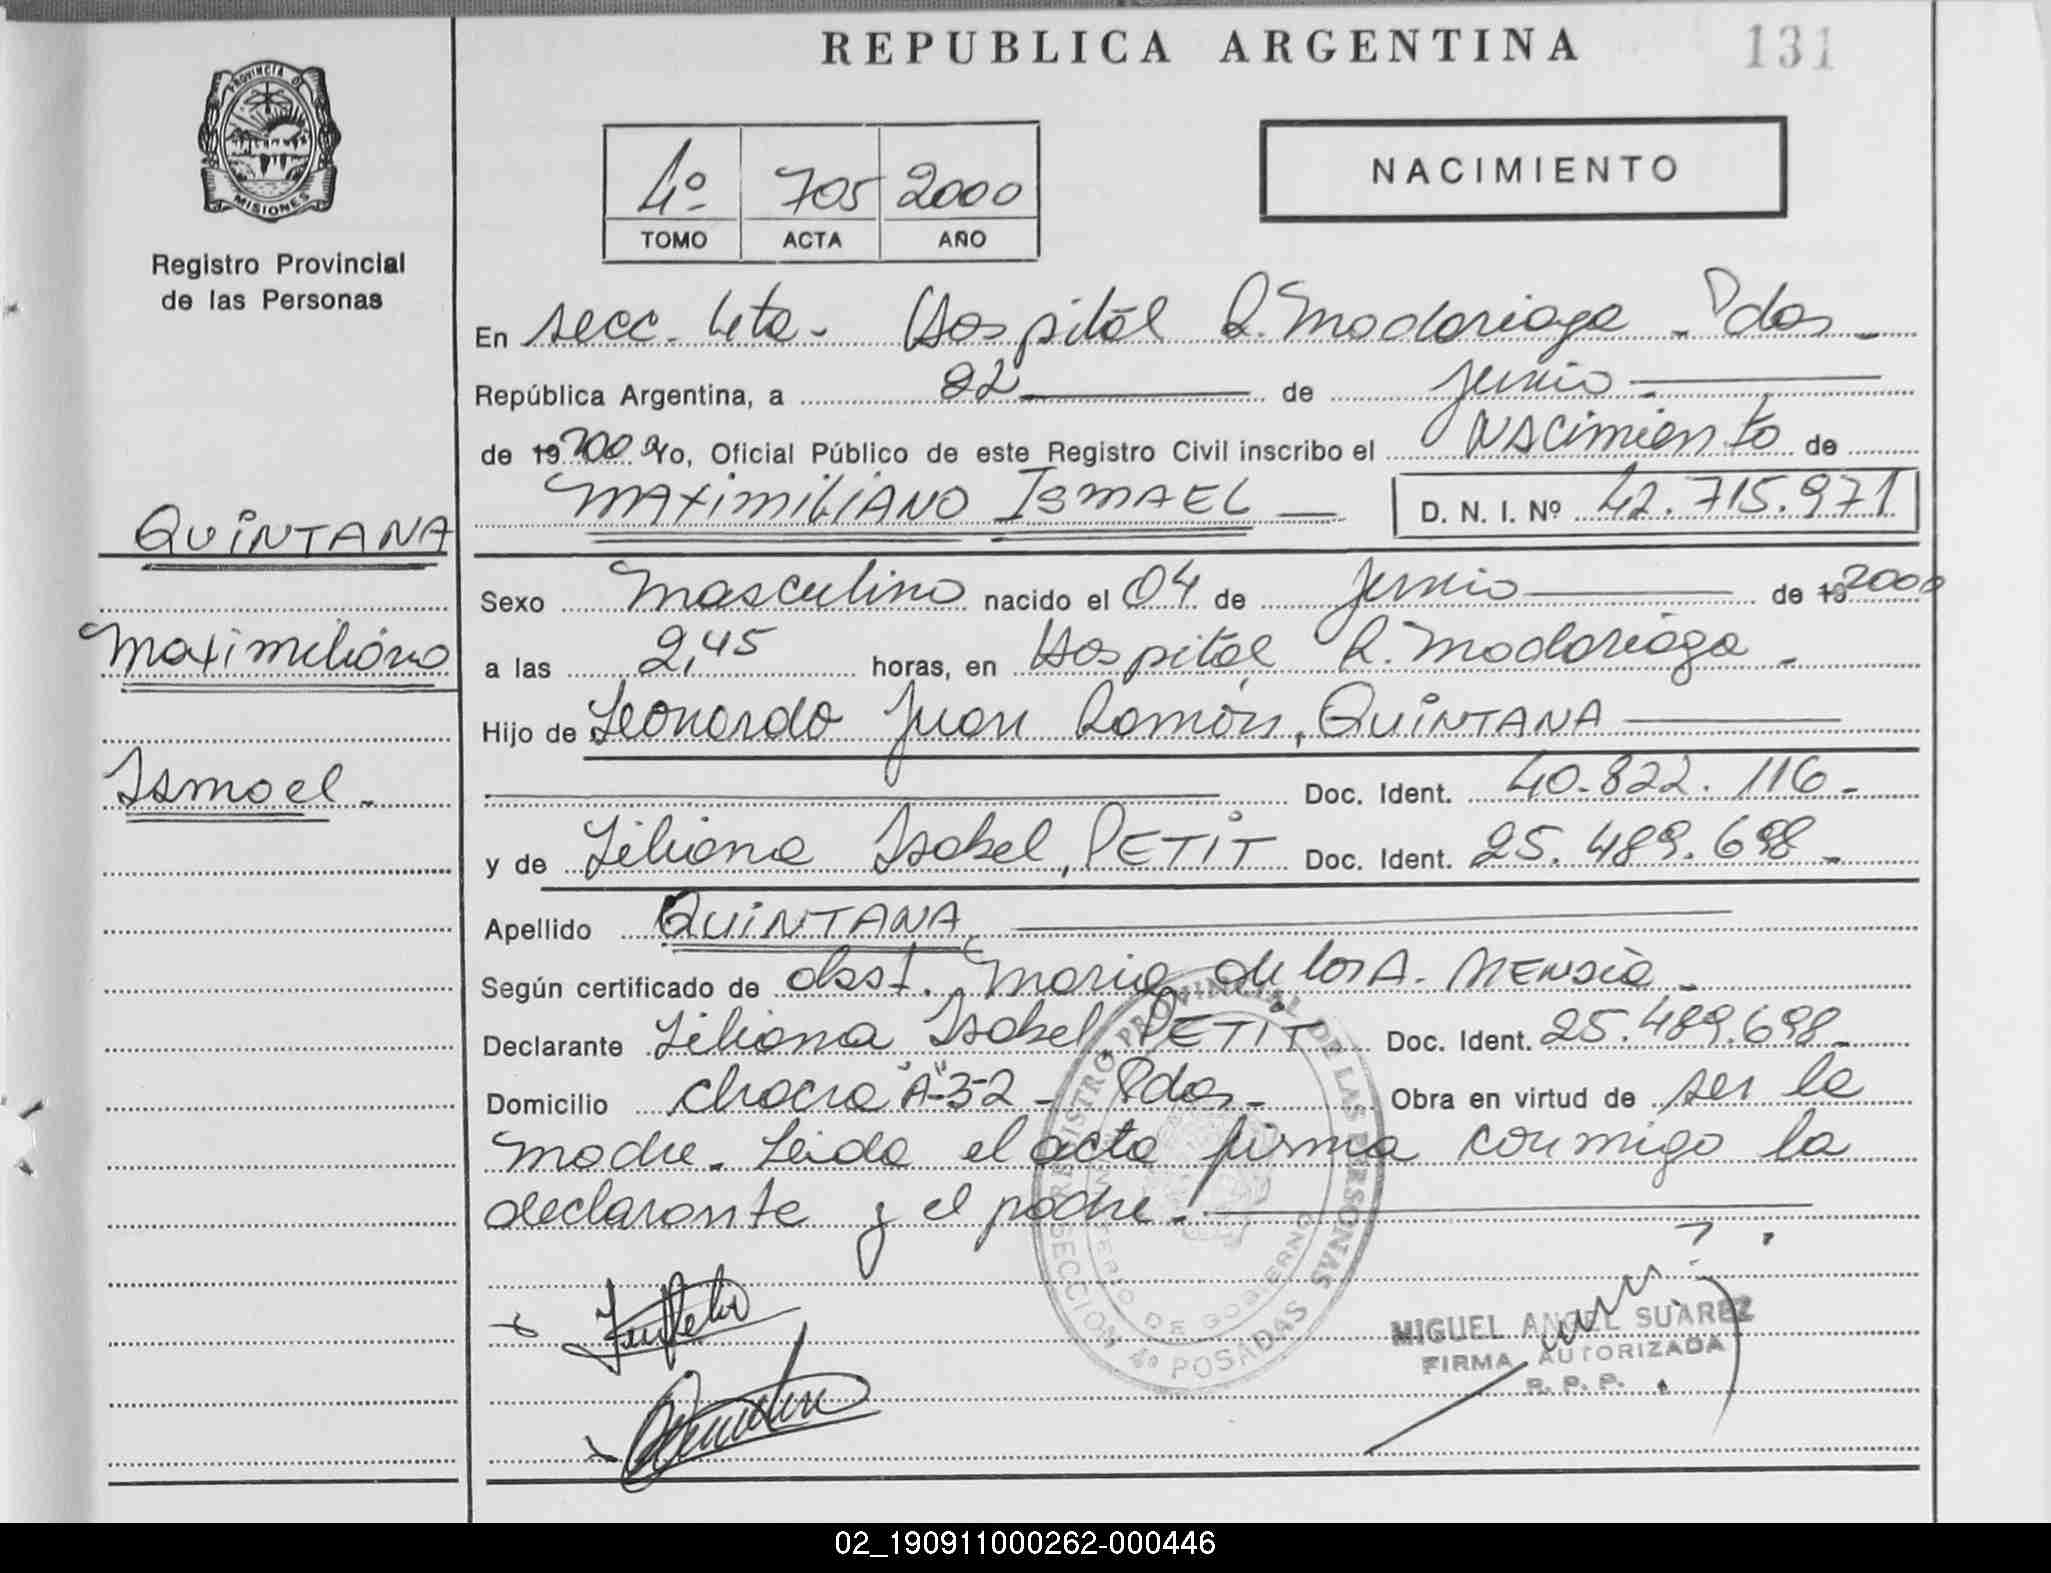 REPUBLICA ARGENTINA
131
PROVINCIA DE
MISIONES
Registro Provincial
de las Personas
4º 705 2000
TOMO ACTA AÑO
NACIMIENTO
En secc. 4ta - Hospital R. Madariaga - Pdas -
República Argentina, a 22 de junio
de 19 2000 Yo, Oficial Público de este Registro Civil inscribo el Nacimiento de
MAXIMILIANO ISMAEL D. N. I. Nº 42.715.971
QUINTANA
Maximiliano
Ismael -
Sexo Masculino nacido el 04 de junio de 19 2000
a las 2,45 horas, en Hospital R. Madariaga -
Hijo de Leonardo Juan Ramón, QUINTANA
Doc. Ident. 40.822.116 -
y de Liliana Isabel, PETIT Doc. Ident. 25.489.698 -
Apellido QUINTANA
Según certificado de obst. Maria de los A. -
Declarante Liliana Isabel, PETIT Doc. Ident. 25.489.698 -
Domicilio chacra "A-32 - Pdas - Obra en virtud de ser la
madre. Leida el acta firma conmigo la
declarante y el padre -
REGISTRO PROVINCIAL DE LAS PERSONAS
SECCION 4º POSADAS
DE GOBIERNO
MIGUEL ANGEL SUAREZ
FIRMA AUTORIZADA
R. P. P.
02_190911000262-000446